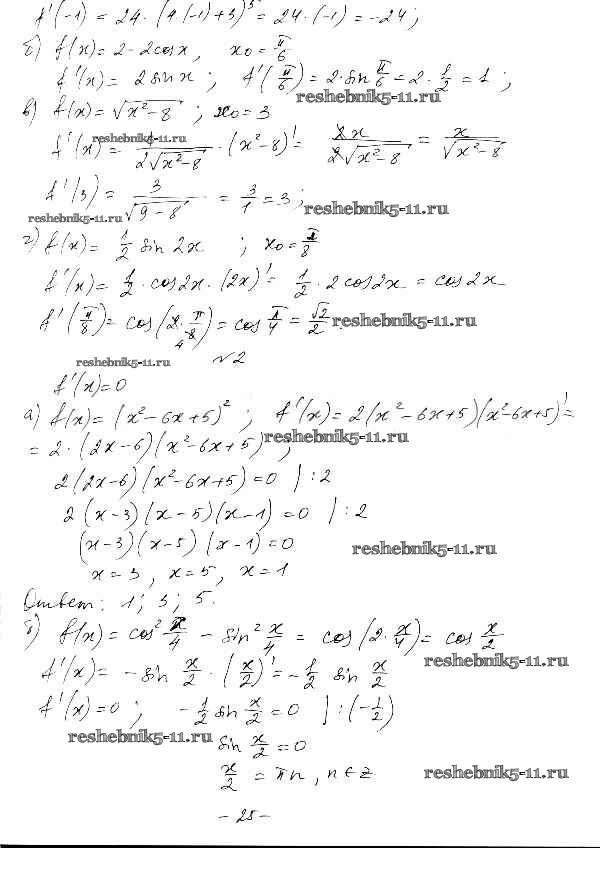 f'(-1) = 24 · (4(-1)+3)⁵ = 24 · (-1) = -24;
б) f(x) = 2 - 2cosx, x₀ = π/6
f'(x) = 2 sin x ; f'(π/6) = 2 · sin π/6 = 2 · 1/2 = 1 ;
reshebnik5-11.ru
в) f(x) = √(x²-8) ; x₀ = 3
reshebnik5-11.ru
f'(x) = 1/(2√(x²-8)) · (x²-8)' = 2x/(2√(x²-8)) = x/√(x²-8)
f'(3) = 3/√(9-8) = 3/1 = 3;
reshebnik5-11.ru
reshebnik5-11.ru
г) f(x) = 1/2 sin 2x ; x₀ = π/8
f'(x) = 1/2 · cos2x · (2x)' = 1/2 · 2cos2x = cos2x
f'(π/8) = cos(2 · π/8) = cos π/4 = √2/2
reshebnik5-11.ru
reshebnik5-11.ru
√2
f'(x)=0
а) f(x) = (x²-6x+5)² ; f'(x) = 2(x²-6x+5)(x²-6x+5)' =
= 2 · (2x-6)(x²-6x+5) ;
reshebnik5-11.ru
2(2x-6)(x²-6x+5) = 0 | : 2
2(x-3)(x-5)(x-1) = 0 | : 2
(x-3)(x-5)(x-1) = 0
reshebnik5-11.ru
x = 3, x = 5, x = 1
Ответ: 1; 3; 5.
б) f(x) = cos² x/4 - sin² x/4 = cos(2 · x/4) = cos x/2
reshebnik5-11.ru
f'(x) = -sin x/2 · (x/2)' = -1/2 sin x/2
f'(x) = 0 ; -1/2 sin x/2 = 0 | : (-1/2)
reshebnik5-11.ru
sin x/2 = 0
x/2 = πn, n∈z
reshebnik5-11.ru
- 25 -